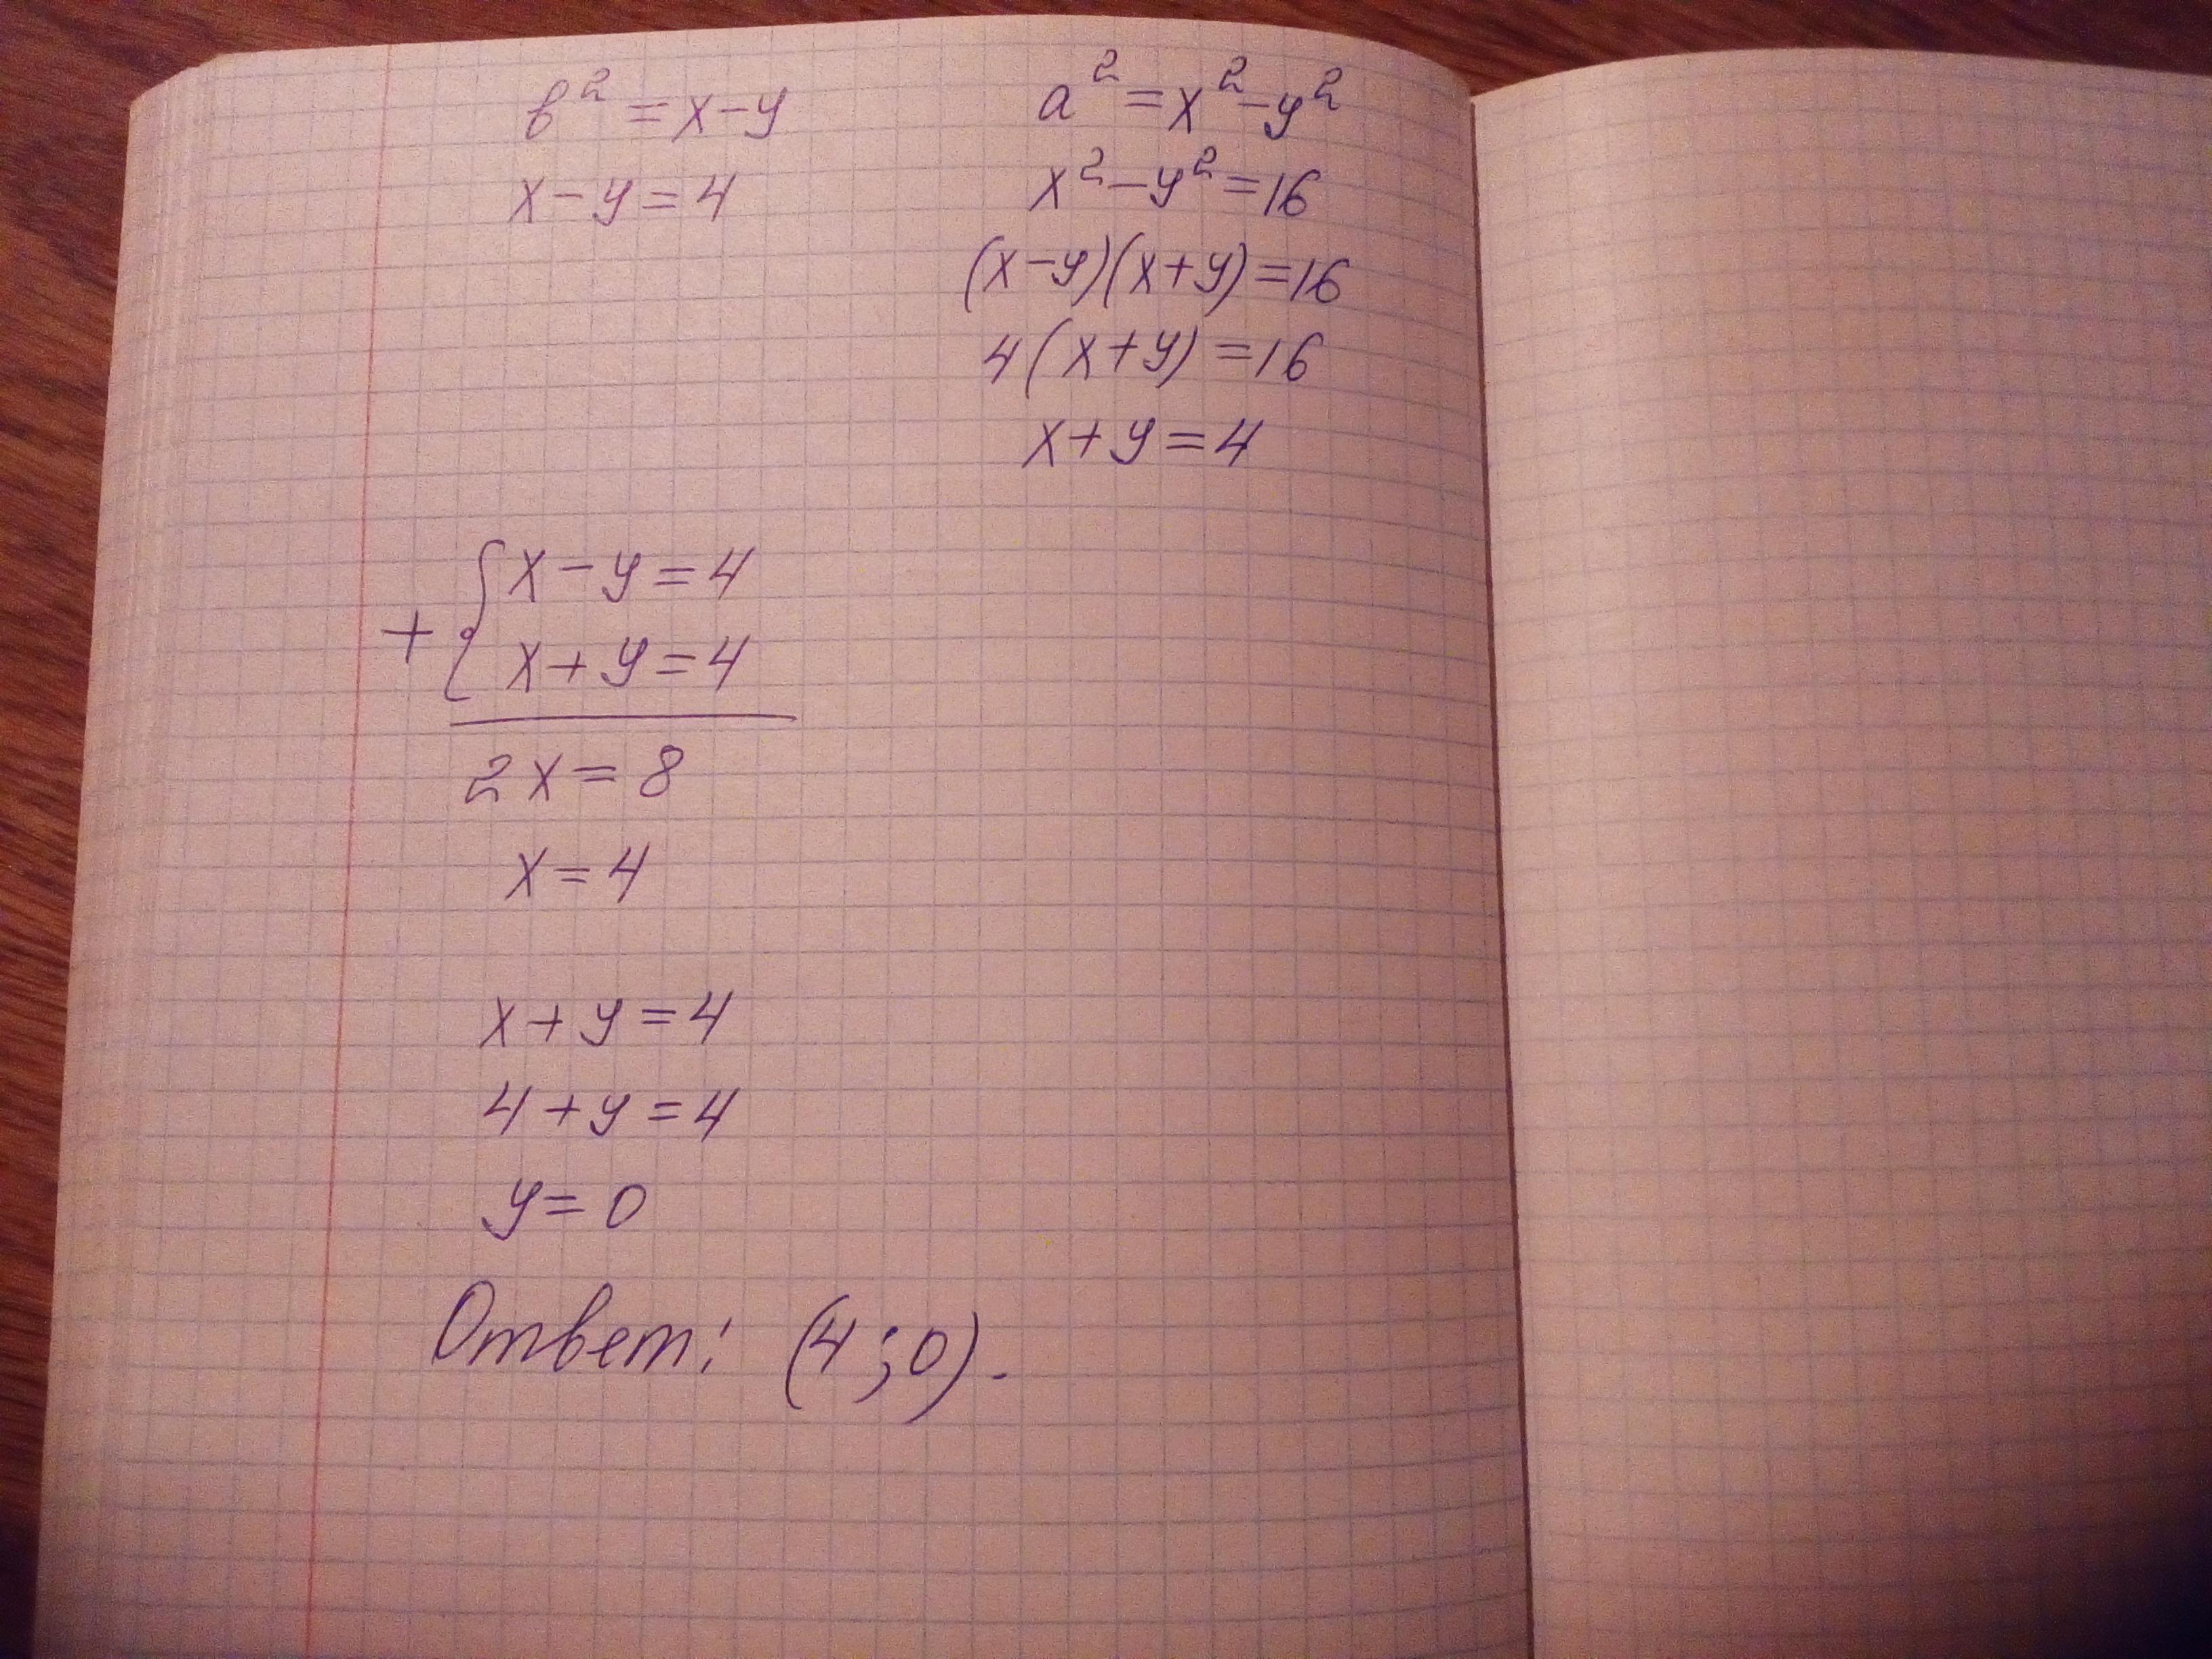 в² = x - y
x - y = 4
a² = x² - y²
x² - y² = 16
(x - y)(x + y) = 16
4(x + y) = 16
x + y = 4
+ { x - y = 4
x + y = 4
2x = 8
x = 4
x + y = 4
4 + y = 4
y = 0
Ответ: (4; 0).